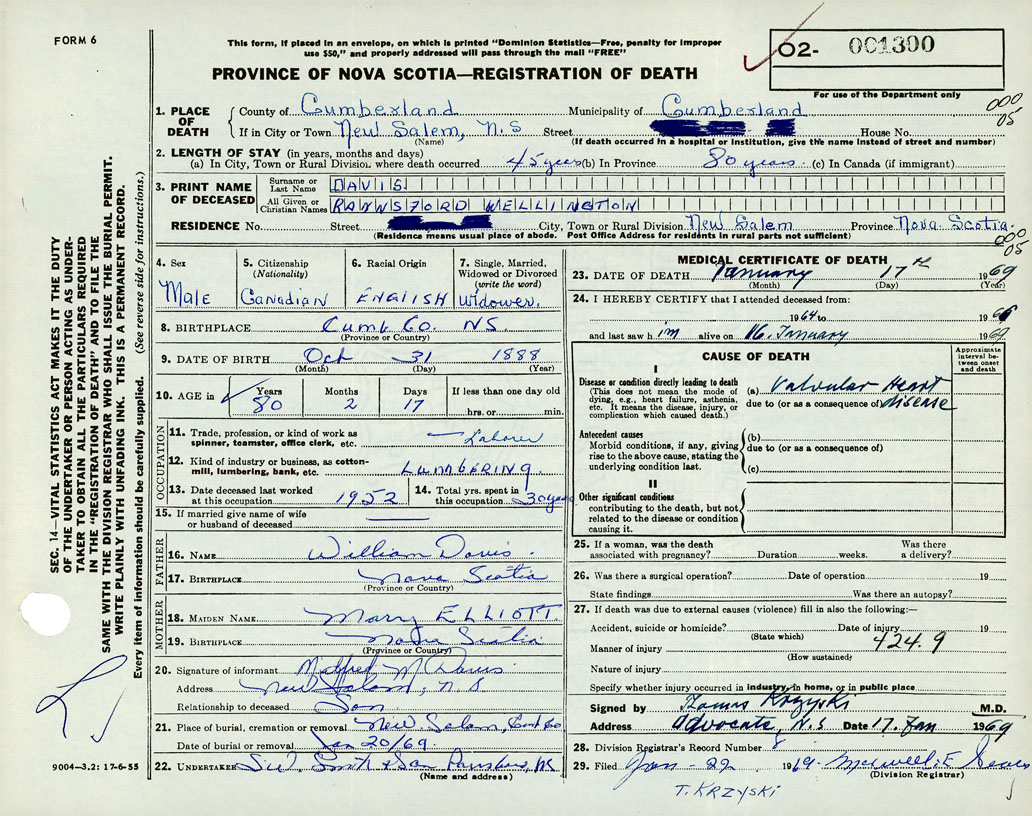 FORM 6
This form, if placed in an envelope, on which is printed "Dominion Statistics—Free, penalty for improper
use $50," and properly addressed will pass through the mail "FREE"
PROVINCE OF NOVA SCOTIA—REGISTRATION OF DEATH
02- 001300
For use of the Department only
000
05
1. PLACE OF DEATH
County of Cumberland Municipality of Cumberland
If in City or Town New Salem, N.S Street House No.
(Name) (If death occurred in a hospital or institution, give the name instead of street and number)
2. LENGTH OF STAY (in years, months and days)
(a) In City, Town or Rural Division where death occurred 45 years (b) In Province 80 years (c) In Canada (if immigrant)
3. PRINT NAME OF DECEASED
Surname or Last Name DAVIS
All Given or Christian Names RANNSFORD WELLINGTON
RESIDENCE No. Street City, Town or Rural Division New Salem Province Nova Scotia
(Residence means usual place of abode. Post Office Address for residents in rural parts not sufficient)
000
05
4. Sex
Male
5. Citizenship
(Nationality)
Canadian
6. Racial Origin
ENGLISH
7. Single, Married,
Widowed or Divorced
(write the word)
Widower.
8. BIRTHPLACE Cumb Co. NS.
(Province or Country)
9. DATE OF BIRTH Oct 31 1888
(Month) (Day) (Year)
10. AGE in Years Months Days If less than one day old
80 2 17 hrs. or min.
OCCUPATION
11. Trade, profession, or kind of work as
spinner, teamster, office clerk, etc. Laborer
12. Kind of industry or business, as cotton-
mill, lumbering, bank, etc. LUMBERING.
13. Date deceased last worked
at this occupation 1952
14. Total yrs. spent in
this occupation 30 years
15. If married give name of wife
or husband of deceased —
FATHER
16. NAME William Davis.
17. BIRTHPLACE Nova Scotia
(Province or Country)
MOTHER
18. MAIDEN NAME Mary ELLIOTT.
19. BIRTHPLACE Nova Scotia
(Province or Country)
20. Signature of informant M Davis
Address New Salem, N.S
Relationship to deceased Son
21. Place of burial, cremation or removal New Salem, Cumb Co
Date of burial or removal Jan 20/69.
22. UNDERTAKER Smith & Son Parrsboro, NS
(Name and address)
MEDICAL CERTIFICATE OF DEATH
23. DATE OF DEATH January 17th 1969
(Month) (Day) (Year)
24. I HEREBY CERTIFY that I attended deceased from:
1964 to 196
and last saw him alive on 16. January 1969
CAUSE OF DEATH
Approximate interval between onset and death
I
Disease or condition directly leading to death
(This does not mean the mode of
dying, e.g., heart failure, asthenia,
etc. It means the disease, injury, or
complication which caused death.)
(a) Valvular Heart
due to (or as a consequence of) disease
Antecedent causes
Morbid conditions, if any, giving
rise to the above cause, stating the
underlying condition last.
(b)
due to (or as a consequence of)
(c)
II
Other significant conditions
contributing to the death, but not
related to the disease or condition
causing it.
25. If a woman, was the death
associated with pregnancy? Duration weeks. Was there
a delivery?
26. Was there a surgical operation? Date of operation 19
State findings Was there an autopsy?
27. If death was due to external causes (violence) fill in also the following:—
Accident, suicide or homicide? Date of injury 19
(State which)
424.9
Manner of injury
(How sustained)
Nature of injury
Specify whether injury occurred in industry, in home, or in public place
Signed by Tomas Krzyski M.D.
Address Advocate, N.S Date 17. Jan 1969
28. Division Registrar's Record Number 8
29. Filed Jan - 22 1969
(Division Registrar)
T. KRZYSKI
SEC. 14—VITAL STATISTICS ACT MAKES IT THE DUTY
OF THE UNDERTAKER OR PERSON ACTING AS UNDER-
TAKER TO OBTAIN ALL THE PARTICULARS REQUIRED
IN THE "REGISTRATION OF DEATH" AND TO FILE THE
SAME WITH THE DIVISION REGISTRAR WHO SHALL ISSUE THE BURIAL PERMIT.
WRITE PLAINLY WITH UNFADING INK. THIS IS A PERMANENT RECORD.
Every item of information should be carefully supplied. (See reverse side for instructions.)
9004—3.2: 17-6-55